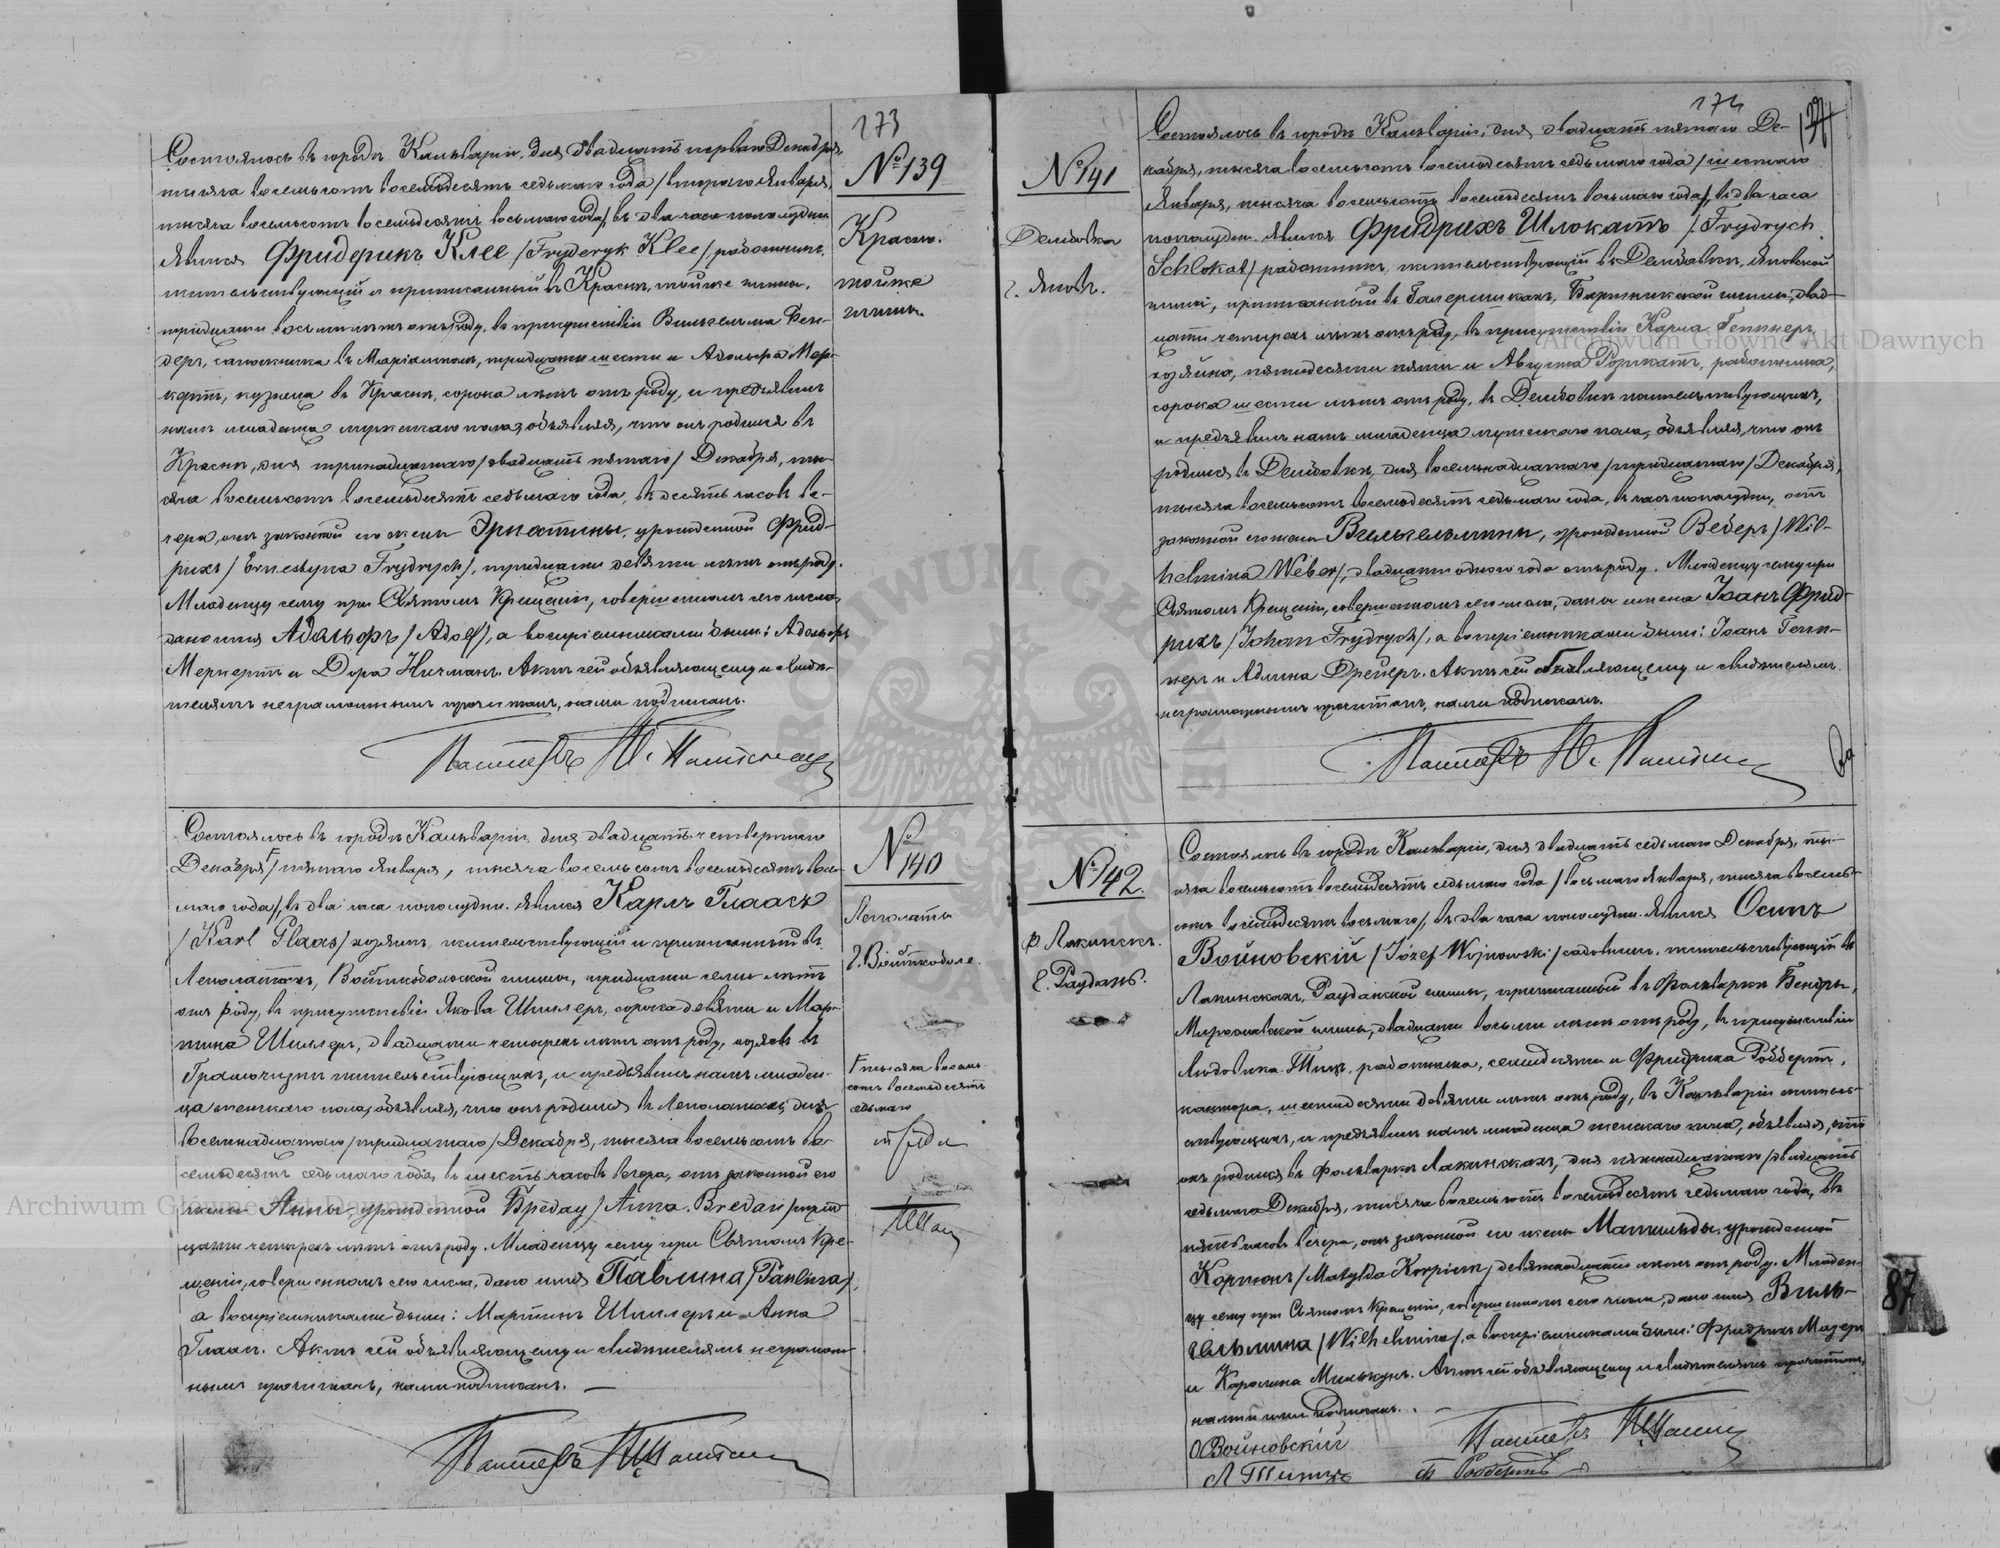 173
№ 139
Красно.
тойже
гмины
Состоялось въ городѣ Кальваріи, дня двадцать перваго Декабря,
тысяча восемьсотъ восемьдесятъ седьмаго года /втораго Января,
тысяча восемьсотъ восемьдесятъ восьмаго года/, въ два часа пополудни
явился Фридерикъ Клее /Fryderyk Klee/, работникъ,
жительствующій и приписанный въ Краснѣ, тойже гмины,
тридцати восьми лѣтъ отъ роду, въ присутствіи Вильгельма Бен-
деръ, сапожника въ Маріамполѣ, тридцати шести и Адольфа Мер-
кертъ, кузнеца въ Краснѣ, сорока лѣтъ отъ роду, и предъявилъ
намъ младенца мужескаго пола, объявляя, что онъ родился въ
Краснѣ, дня тринадцатаго /двадцать пятаго/ Декабря, ты-
сяча восемьсотъ восемьдесятъ седьмаго года, въ десять часовъ ве-
чера, отъ законной его жены Эрнестины, урожденной Фрид-
рихъ /Ernestyna Frydrych/, тридцати девяти лѣтъ отъ роду.
Младенцу сему при Святомъ Крещеніи, совершенномъ сего числа,
дано имя Адольфъ /Adolf/, а воспріемниками были: Адольфъ
Меркертъ и Дора Ничманъ. Актъ сей объявляющему и свидѣ-
телямъ неграмотнымъ прочитанъ, нами подписанъ.
Пасторъ
№ 140
Леполаты
г. Войткоболе.
Состоялось въ городѣ Кальваріи, дня двадцать четвертаго
Декабря /пятаго Января, тысяча восемьсотъ восемьдесятъ вось-
маго года/, въ два часа пополудни. Явился Карлъ Глаасъ
/Karl Glaas/ хозяинъ, жительствующій и приписанный въ
Леполатахъ, Войткобольской гмины, тридцати семи лѣтъ
отъ роду, въ присутствіи Якова Шиллеръ, сорока девяти и Мар-
тина Шиллеръ, двадцати четырехъ лѣтъ отъ роду, хозяевъ въ
жительствующихъ, и предъявилъ намъ младен-
ца женскаго пола, объявляя, что онъ родился въ Леполатахъ, дня
восемнадцатаго /тридцатаго/ Декабря, тысяча восемьсотъ во-
семьдесятъ седьмаго года, въ шесть часовъ вечера, отъ законной его
жены Анны, урожденной Бредау /Anna Bredau/ тридт
цати четырехъ лѣтъ отъ роду. Младенцу сему при Святомъ Кре-
щеніи, совершенномъ сего числа, дано имя Павлина /Paulina/,
а воспріемниками были: Мартинъ Шиллеръ и Анна
Глаасъ. Актъ сей объявляющему и свидѣтелямъ неграмот-
нымъ прочитанъ, нами подписанъ.
тысяча восемь-
сотъ восемьдесятъ
седьмаго
Пасторъ
174
№ 141
г. Яновъ.
Состоялось въ городѣ Кальваріи, дня двадцать пятаго Де-
кабря, тысяча восемьсотъ восемьдесятъ седьмаго года /шестаго
Января, тысяча восемьсотъ восемьдесятъ восьмаго года/, въ два часа
пополудни. Явился Фридрихъ Шлокатъ /Frydrych
Schlokat/ работникъ, жительствующій въ Дембовкѣ, Яновской
гмины, приписанный въ гмины, двад-
цати четырехъ лѣтъ отъ роду, въ присутствіи Карла Геннеръ,
хозяина, пятидесяти пяти и Августа работника,
сорока шести лѣтъ отъ роду, въ Дембовкѣ жительствующихъ,
и предъявилъ намъ младенца мужескаго пола, объявляя, что онъ
родился въ Дембовкѣ, дня восемнадцатаго /тридцатаго/ Декабря,
тысяча восемьсотъ восемьдесятъ седьмаго года, въ часъ пополудни, отъ
законной его жены Вильгельмины, урожденной Веберъ /Wil-
helmina Weber/, двадцати одного года отъ роду. Младенцу сему при
Святомъ Крещеніи, совершенномъ сего числа, даны имена Іоанъ Фрид-
рихъ /Johan Frydrych/, а воспріемниками были: Іоанъ Генн-
неръ и Адлина Дрейеръ. Актъ сей объявляющему и свидѣтелямъ
неграмотнымъ прочитанъ, нами подписанъ.
Пасторъ
№ 142.
ф. Лакинскъ.
г. Раудань.
Состоялось въ городѣ Кальваріи, дня двадцать седьмаго Декабря, ты-
сяча восемьсотъ восемьдесятъ седьмаго года /восьмаго Января, тысяча восемь-
сотъ восемьдесятъ восьмаго/, въ два часа пополудни. Явился Осипъ
Войновскій /Józef Wojnowski/ садовникъ, жительствующій въ
Лакинскахъ, Рауданской гмины, приписанный въ Фольваркѣ
гмины, двадцати восьми лѣтъ отъ роду, въ присутствіи
Людовика Тицъ, работника, и Фридриха Роббертъ,
кантора, шестидесяти девяти лѣтъ отъ роду, въ Кальваріи житель-
ствующихъ, и предъявилъ намъ младенца женскаго пола, объявляя, что
онъ родился въ фольваркѣ Лакинскахъ, дня пятнадцатаго /двадцать
седьмаго Декабря, тысяча восемьсотъ восемьдесятъ седьмаго года, въ
пять часовъ вечера, отъ законной его жены Матильды, урожденной
/Matylda/, девятнадцати лѣтъ отъ роду. Младен-
цу сему при Святомъ Крещеніи, совершенномъ сего числа, дано имя Виль-
гельмина /Wilhelmina/, а воспріемниками были: Фридрихъ Мазеръ
и Каролина Актъ сей объявляющему и свидѣтелямъ прочитанъ,
нами и ими подписанъ.
О Войновскій
Пасторъ
87
Archiwum Główne Akt Dawnych
Archiwum Główne Akt Dawnych